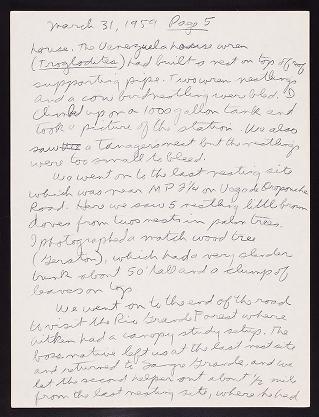 March 31, 1959 Page 5
house. The Venezuela house wren
(Troglodites) had built a nest on top of
supporting pipe. Two wren nestlings
and a cow bird nestling were bled. I
climbed up on a 1000 gallon tank and
took a picture of the station. We also
saw a tanagers nest but the nestlings
were too small to bleed.
We went on to the last nesting site
which was near MP 2 1/4 on Vega de Oropouche
Road. Here we saw 5 nestling little brown
doves from two nests in palm trees.
I photographed a match wood tree
which had a very slender
trunk about 50' tall and a clump of
leaves on top.
We went on to the end of the road
to visit the Rio Grande Forest where
Aitken had a canopy study setup. The
boss native left us at the last nest site
and returned to Sangre Grande, and we
let the second helper out about 1/2 mile
from the last nesting site, where he had